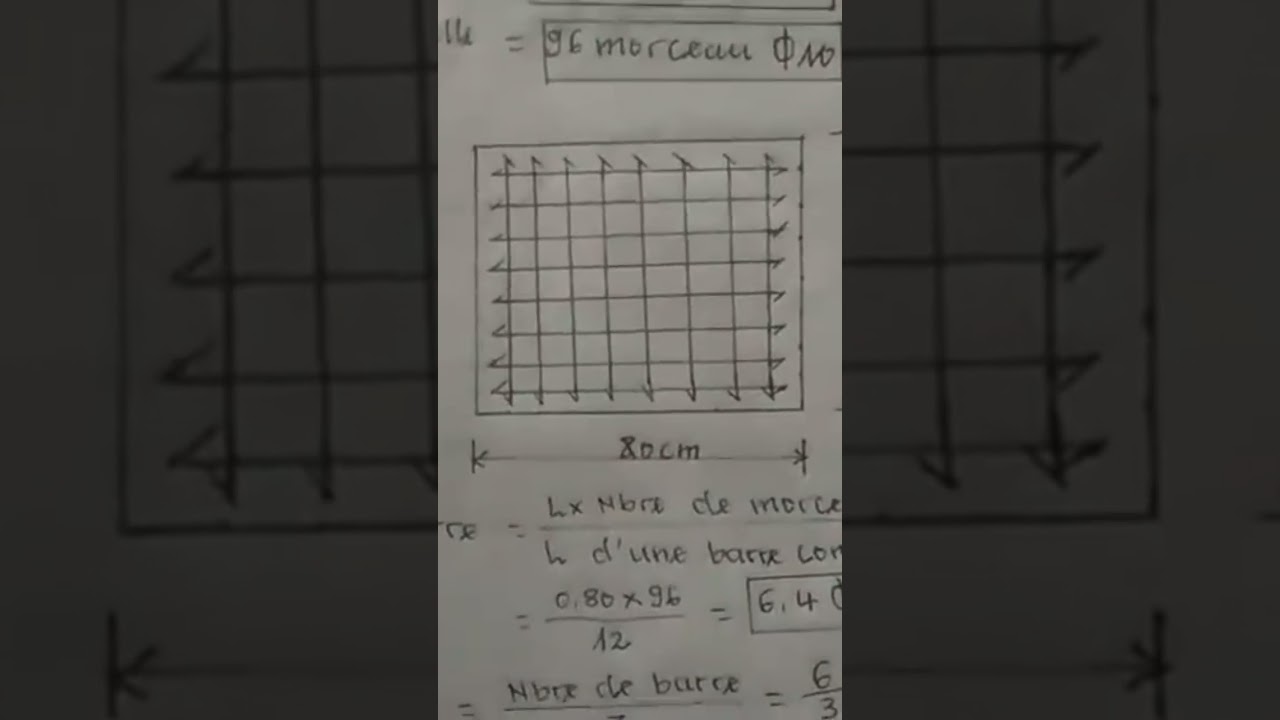 = 96 morceau Φ10
80cm
= L x Nbre de morce
L d'une barre con
= 0.80 x 96 = 6.4
12
= Nbre de barre = 6
3